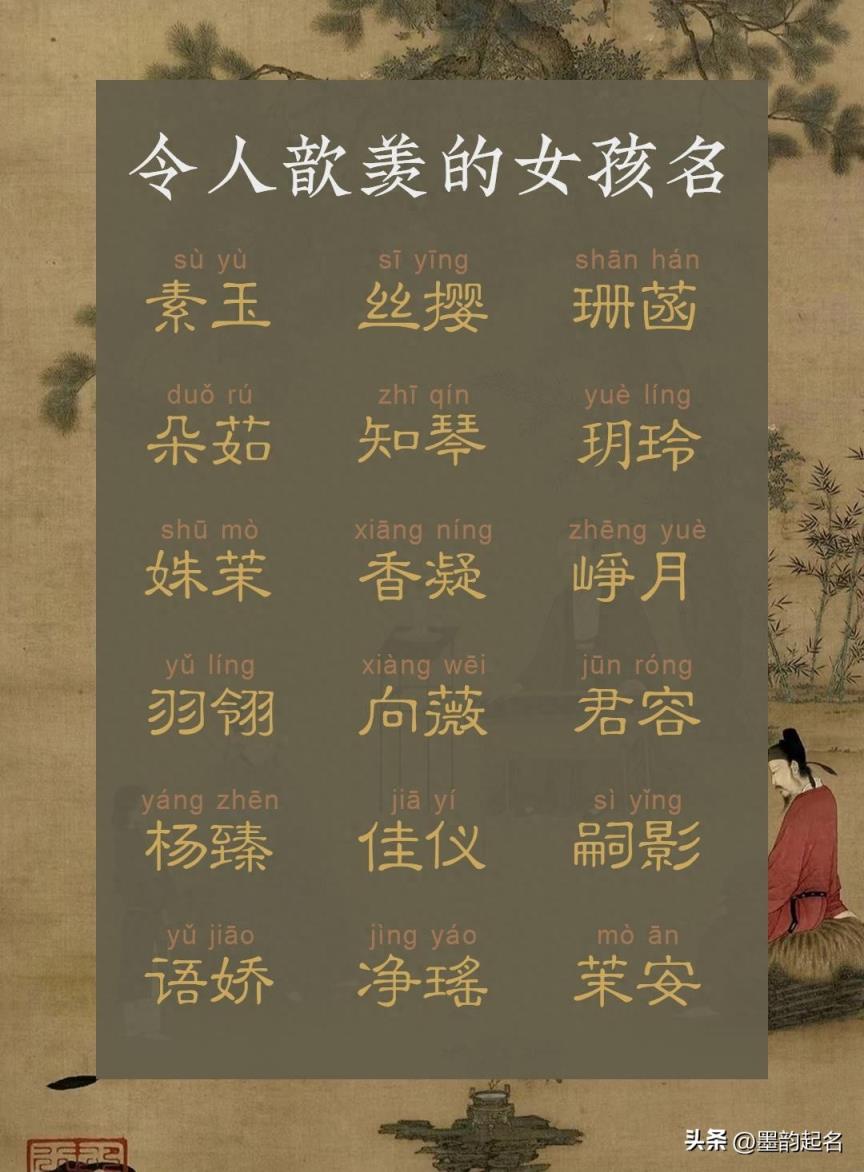 令人歆羡的女孩名
sù yù sī yīng shān hán
素玉 丝撄 珊菡
duǒ rú zhī qín yuè líng
朵茹 知琴 玥玲
shū mò xiāng níng zhēng yuè
姝茉 香凝 峥月
yǔ líng xiàng wēi jūn róng
羽翎 向薇 君容
yáng zhēn jiā yí sì yǐng
杨臻 佳仪 嗣影
yǔ jiāo jìng yáo mò ān
语娇 净瑶 茉安
头条 @墨韵起名